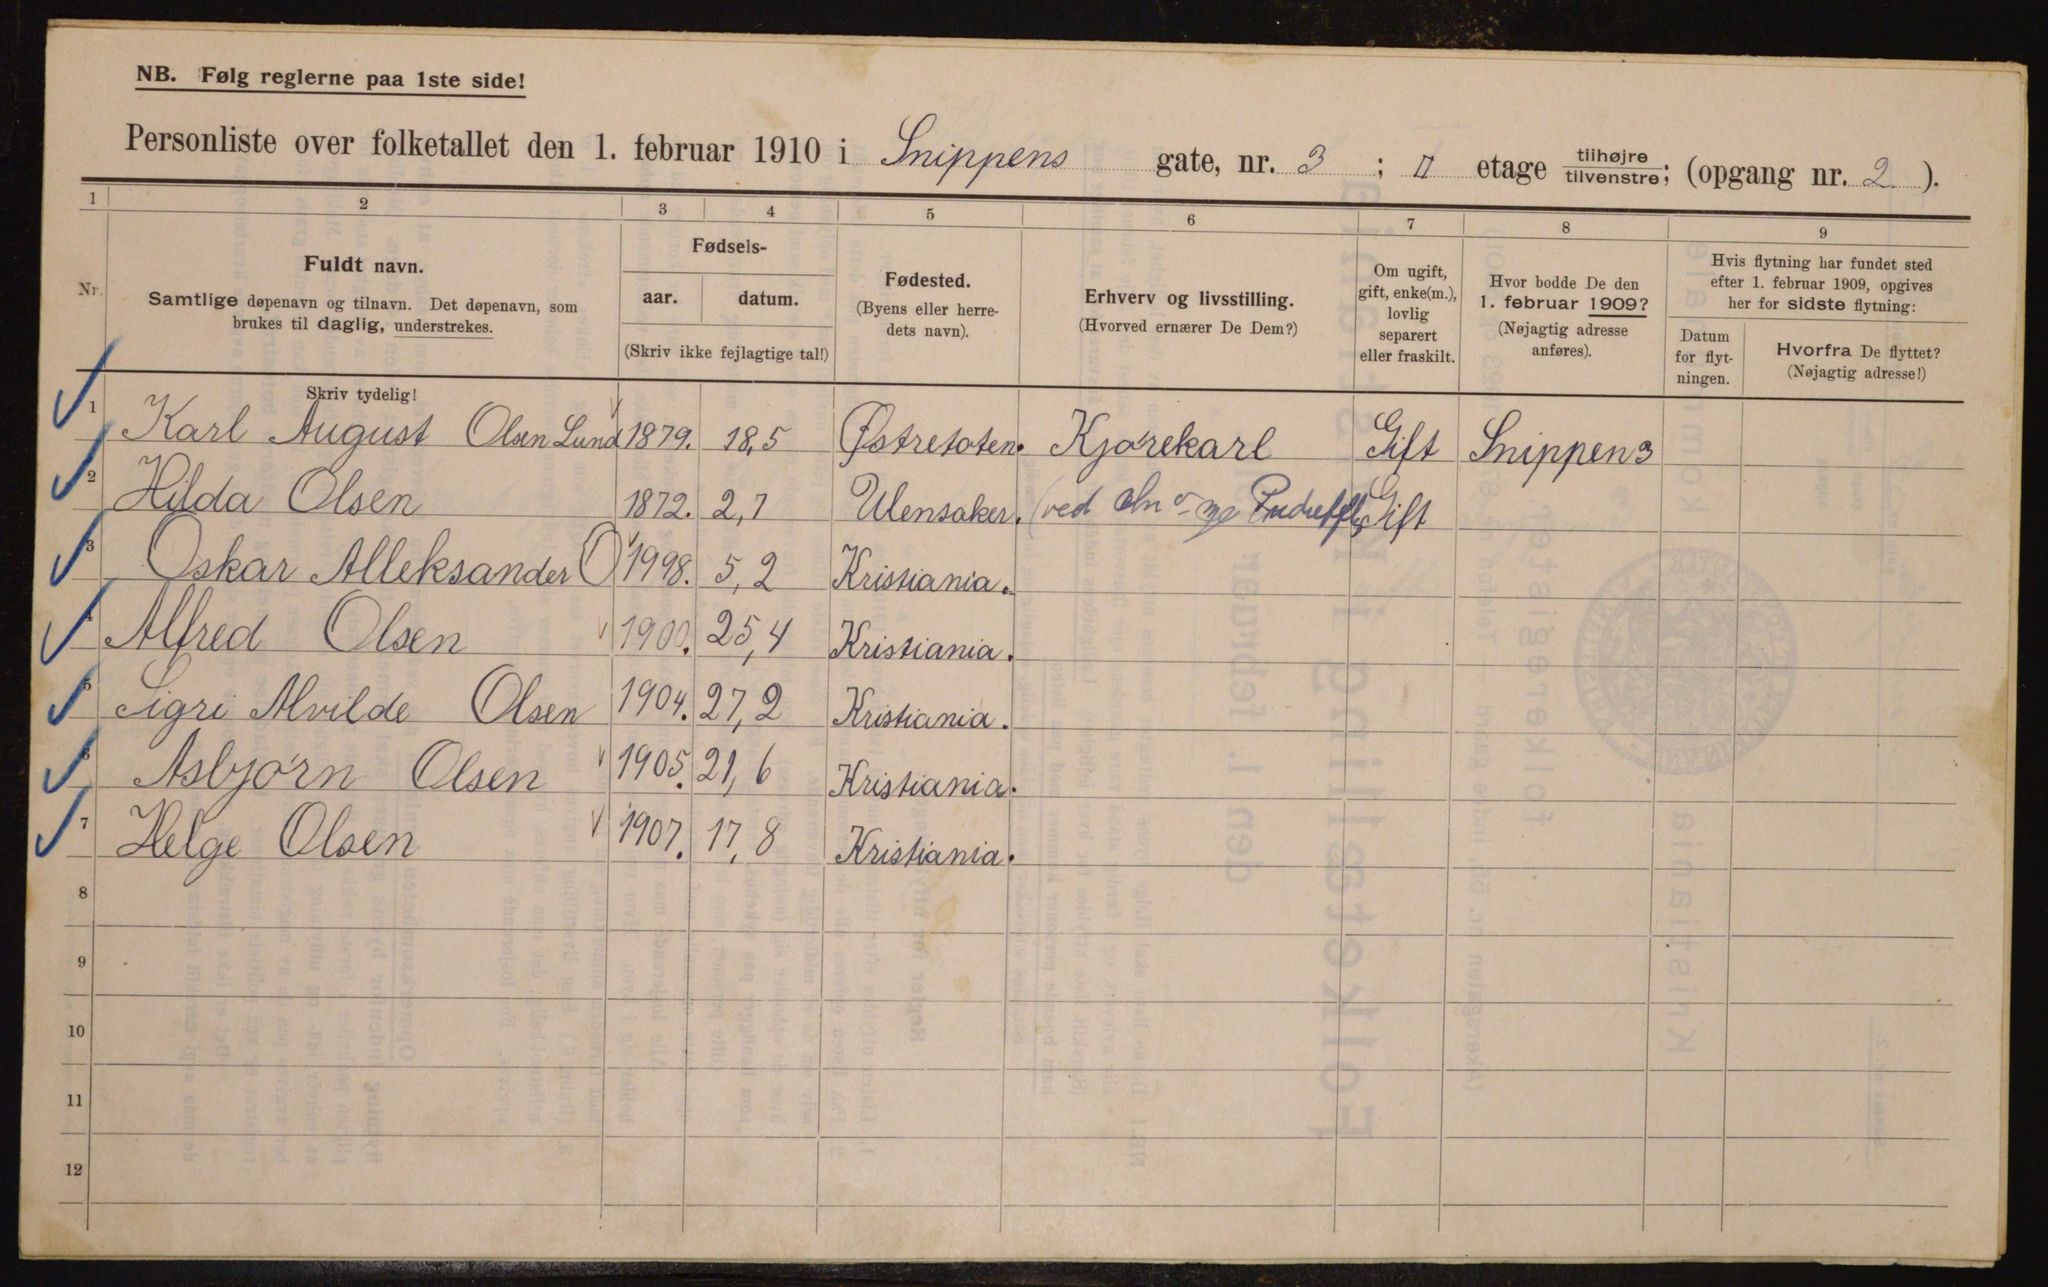 NB. Følg reglerne paa 1ste side!
Personliste over folketallet den 1. februar 1910 i Snippens gate, nr. 3 ; II etage tilhøjre/tilvenstre; (opgang nr. 2 ).
1 2 3 4 5 6 7 8 9
Nr.
Fuldt navn.
Samtlige døpenavn og tilnavn. Det døpenavn, som
brukes til daglig, understrekes.
Fødsels-
aar. datum.
(Skriv ikke fejlagtige tal!)
Fødested.
(Byens eller herre-
dets navn).
Erhverv og livsstilling.
(Hvorved ernærer De Dem?)
Om ugift,
gift, enke(m.),
lovlig
separert
eller fraskilt.
Hvor bodde De den
1. februar 1909?
(Nøjagtig adresse
anføres).
Hvis flytning har fundet sted
efter 1. februar 1909, opgives
her for sidste flytning:
Datum
for flyt-
ningen.
Hvorfra De flyttet?
(Nøjagtig adresse!)
Skriv tydelig!
1 Karl August Olsen Lund 1879. 18,5 Østretoten. Kjørekarl Gift Snippen 3
2 Hilda Olsen 1872. 2,7 Ulensaker. (ved Gift
3 Oskar Alleksander O 1998. 5,2 Kristiania.
4 Alfred Olsen 1900. 25,4 Kristiania.
5 Sigri Alvilde Olsen 1904. 27,2 Kristiania.
6 Asbjørn Olsen 1905. 21,6 Kristiania.
7 Helge Olsen 1907. 17,8 Kristiania.
8
9
10
11
12